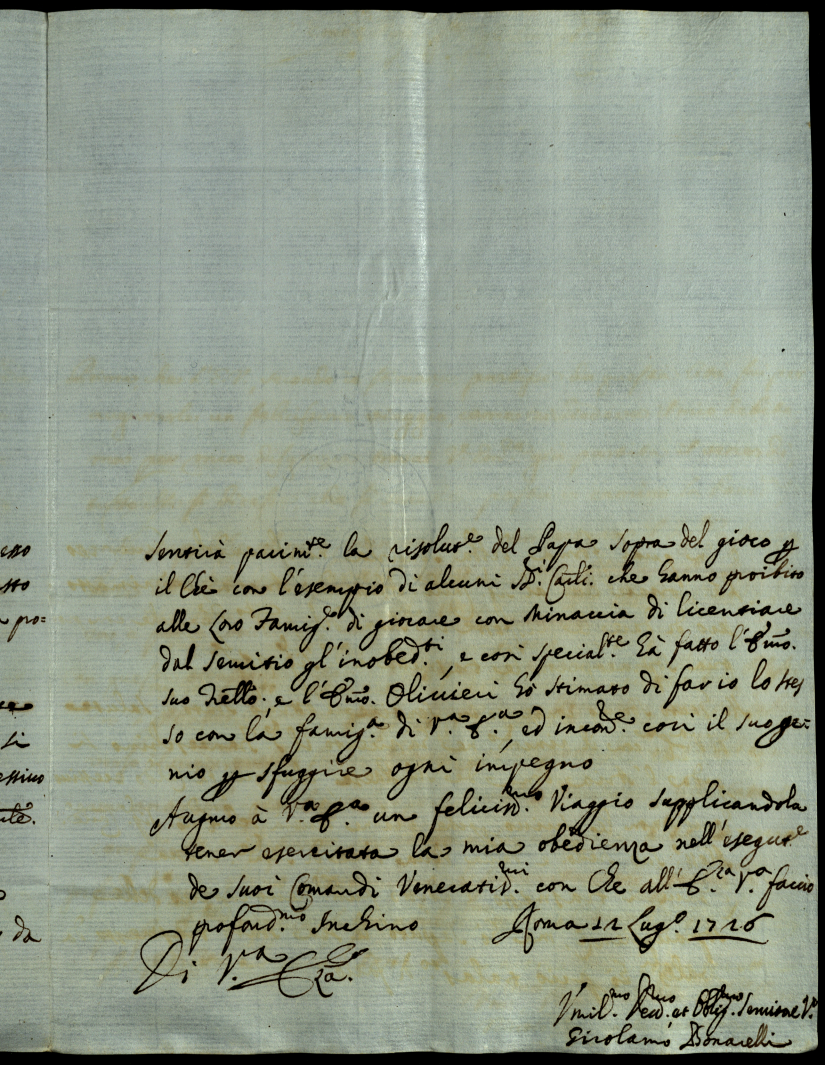 Sentirà parim.te la risoluz.e del Papa sopra del gioco
il che con l'esempio di alcuni SS.i Card.li che hanno proibito
alle Loro Famig.e di giocare con minaccia di licenziare
dal servitio gl'inobed.ti, e così special.te hà fatto l'Em̃o.
suo e l'Em̃o. Olivieri hò stimato di far io lo stes
so con la famig.a di V.a E.a, ed così il suo ge=
nio p sfuggire ogni impegno
Auguro à V.a E.a un feliciss.mo Viaggio supplicandola
tener esercitata la mia obedienza nell'esegut.e
de suoi Comandi Veneratiss.mi con che all'E.za V.a faccio
profond.mo Inchino Roma 12 Lug.o 1726
Di V.ra E.za.
Vmil.mo Dev.mo et Oblig.mo Servitore V.o
Girolamo Bonarelli